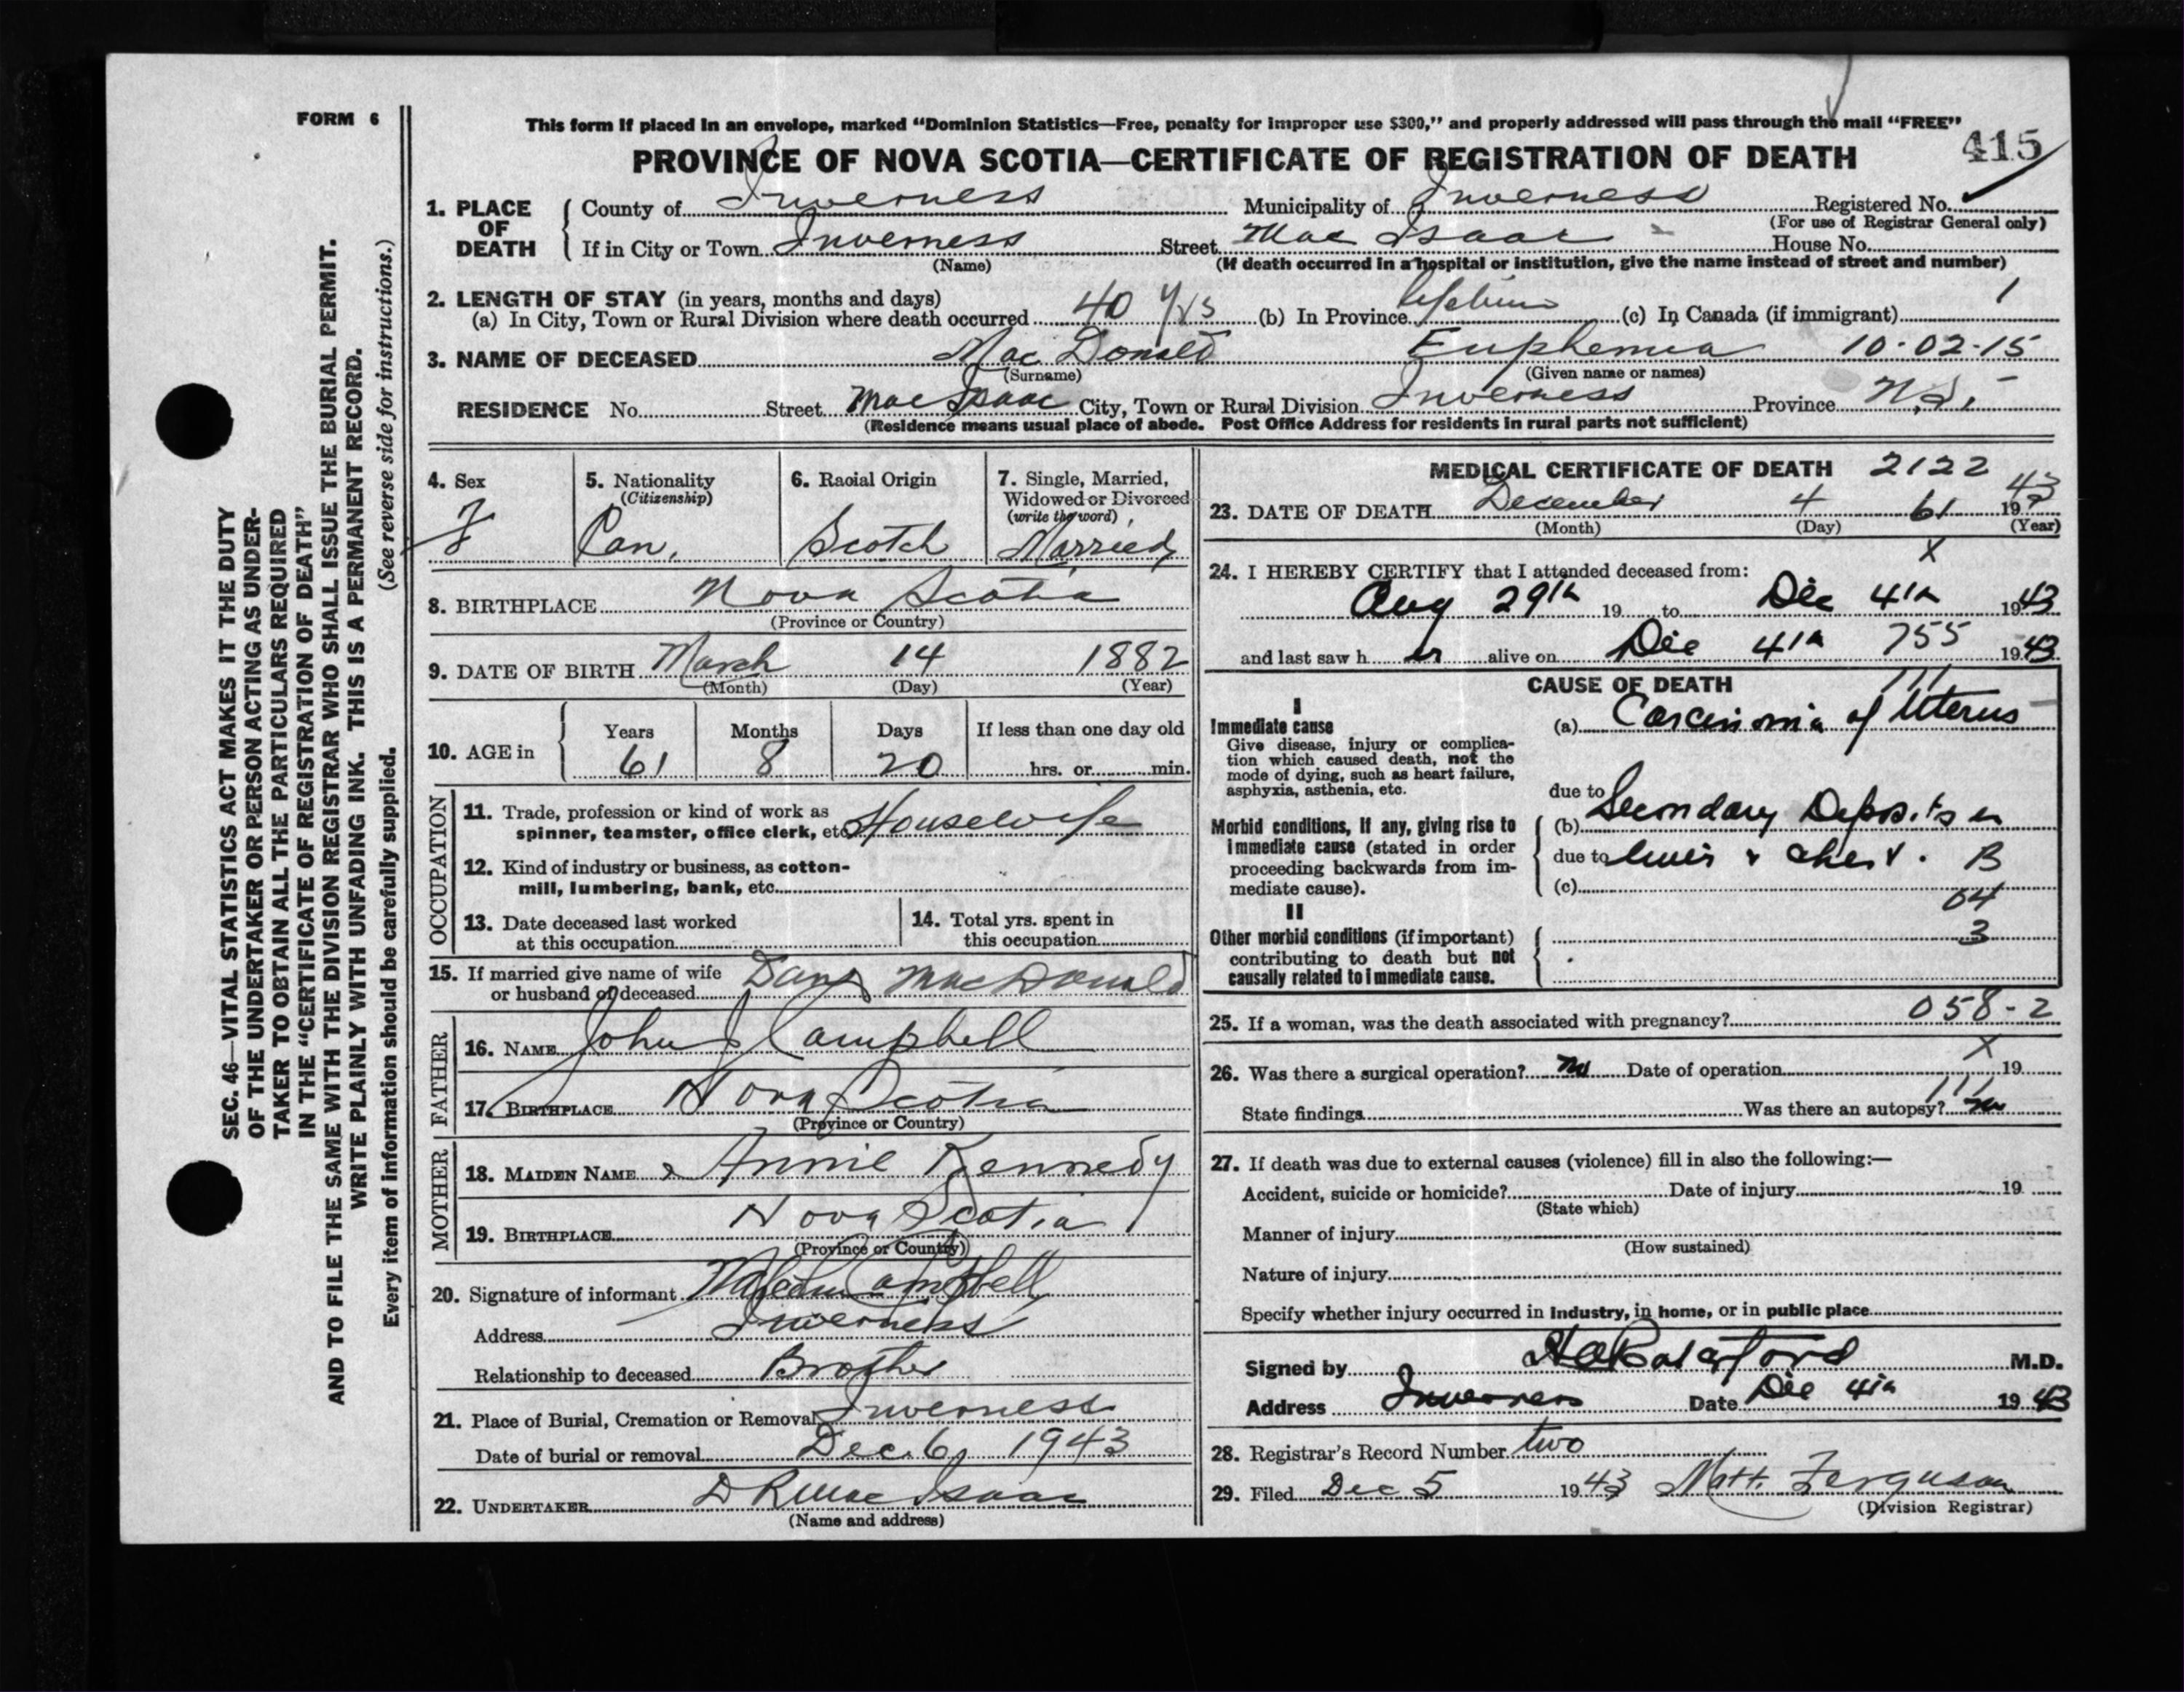 FORM 6
This form if placed in an envelope, marked “Dominion Statistics—Free, penalty for improper use $300,” and properly addressed will pass through the mail “FREE”
PROVINCE OF NOVA SCOTIA—CERTIFICATE OF REGISTRATION OF DEATH
415
1. PLACE OF DEATH
County of Inverness Municipality of Inverness Registered No.
(For use of Registrar General only)
If in City or Town Inverness Street Mac Isaac House No.
(Name) (If death occurred in a hospital or institution, give the name instead of street and number)
2. LENGTH OF STAY (in years, months and days)
(a) In City, Town or Rural Division where death occurred 40 yrs (b) In Province lifetime (c) In Canada (if immigrant) 1
3. NAME OF DECEASED Mac Donald Euphemia 10-02-15
(Surname) (Given name or names)
RESIDENCE No. Street MacIsaac City, Town or Rural Division Inverness Province N.S.
(Residence means usual place of abode. Post Office Address for residents in rural parts not sufficient)
4. Sex
F
5. Nationality
(Citizenship)
Can.
6. Racial Origin
Scotch
7. Single, Married,
Widowed or Divorced
(write the word)
Married
8. BIRTHPLACE Nova Scotia
(Province or Country)
9. DATE OF BIRTH March 14 1882
(Month) (Day) (Year)
10. AGE in
Years Months Days If less than one day old
61 8 20 hrs. or min.
OCCUPATION
11. Trade, profession or kind of work as
spinner, teamster, office clerk, etc Housewife
12. Kind of industry or business, as cotton-
mill, lumbering, bank, etc.
13. Date deceased last worked
at this occupation
14. Total yrs. spent in
this occupation
15. If married give name of wife
or husband of deceased MacDonald
FATHER
16. NAME John J Campbell
17. BIRTHPLACE Nova Scotia
(Province or Country)
MOTHER
18. MAIDEN NAME Annie Kennedy
19. BIRTHPLACE Nova Scotia
(Province or Country)
20. Signature of informant Malcolm Campbell
Address Inverness
Relationship to deceased Brother
21. Place of Burial, Cremation or Removal Inverness
Date of burial or removal Dec. 6, 1943
22. UNDERTAKER D R MacIsaac
(Name and address)
MEDICAL CERTIFICATE OF DEATH 2122
23. DATE OF DEATH December 4 61 19 43
(Month) (Day) (Year)
X
24. I HEREBY CERTIFY that I attended deceased from:
Aug 29th 19 to Dec 4th 1943
and last saw h er alive on Dec 4th 755 1943
CAUSE OF DEATH 111
I
Immediate cause
Give disease, injury or complica-
tion which caused death, not the
mode of dying, such as heart failure,
asphyxia, asthenia, etc.
(a) Carcinoma of Uterus
due to
Morbid conditions, if any, giving rise to
immediate cause (stated in order
proceeding backwards from im-
mediate cause).
(b) Secondary Deposits in
due to liver & chest. B
(c)
04
II
Other morbid conditions (if important)
contributing to death but not
causally related to immediate cause.
3
25. If a woman, was the death associated with pregnancy? 058-2
X
26. Was there a surgical operation? no Date of operation 19
111
State findings Was there an autopsy? no
27. If death was due to external causes (violence) fill in also the following:—
Accident, suicide or homicide? Date of injury 19
(State which)
Manner of injury
(How sustained)
Nature of injury
Specify whether injury occurred in industry, in home, or in public place
Signed by M.D.
Address Inverness Date Dec 4th 1943
28. Registrar's Record Number two
29. Filed Dec 5 1943 Matt. Ferguson
(Division Registrar)
SEC. 46—VITAL STATISTICS ACT MAKES IT THE DUTY
OF THE UNDERTAKER OR PERSON ACTING AS UNDER-
TAKER TO OBTAIN ALL THE PARTICULARS REQUIRED
IN THE “CERTIFICATE OF REGISTRATION OF DEATH”
AND TO FILE THE SAME WITH THE DIVISION REGISTRAR WHO SHALL ISSUE THE BURIAL PERMIT.
WRITE PLAINLY WITH UNFADING INK. THIS IS A PERMANENT RECORD.
Every item of information should be carefully supplied. (See reverse side for instructions.)